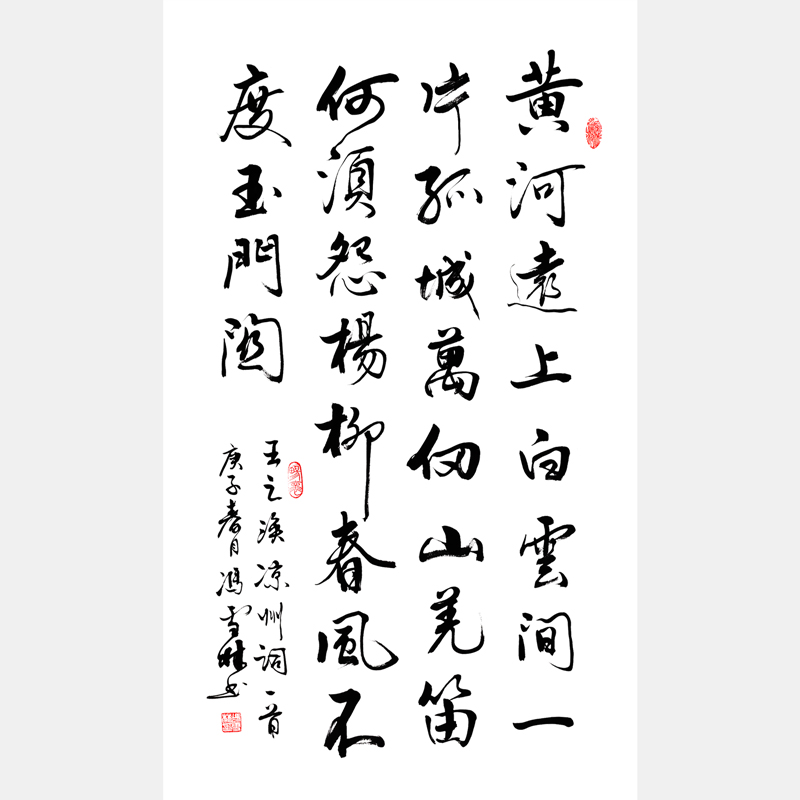 黄河遠上白雲間一
片孤城萬仞山羌笛
何須怨楊柳春風不
度玉門関
王之渙凉州詞一首
庚子春月馮雪林书